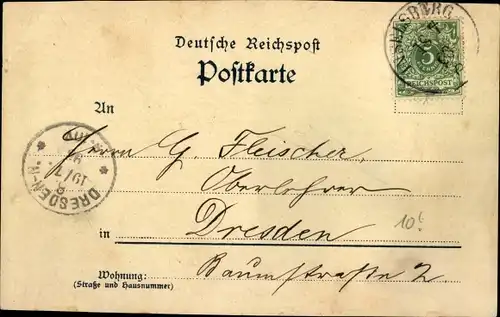 Deutsche Reichspost
Postkarte
5
REICHSPOST
An
Herrn G. Fleischer,
Oberlehrer
in Dresden
Baumstraße 2.
Wohnung:
(Straße und Hausnummer)
DRESDEN-N.
19/7
10